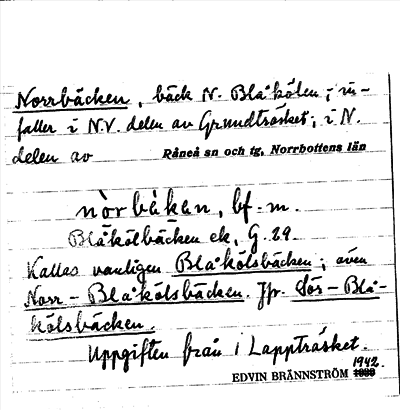 Norrbäcken, bäck N. Blåkölen; in-
faller i N.V. delen av Grundträsket; i N.
delen av Råneå sn och tg, Norrbottens län
nòrbä̀kan, bf. m.
Blåkölbäcken ek. G. 29.
Kallas vanligen Blåkölsbäcken; även
Norr-Blåkölsbäcken. Jfr. Sör-Blå-
kölsbäcken.
Uppgiften från i Lappträsket.
1942.
EDVIN BRÄNNSTRÖM